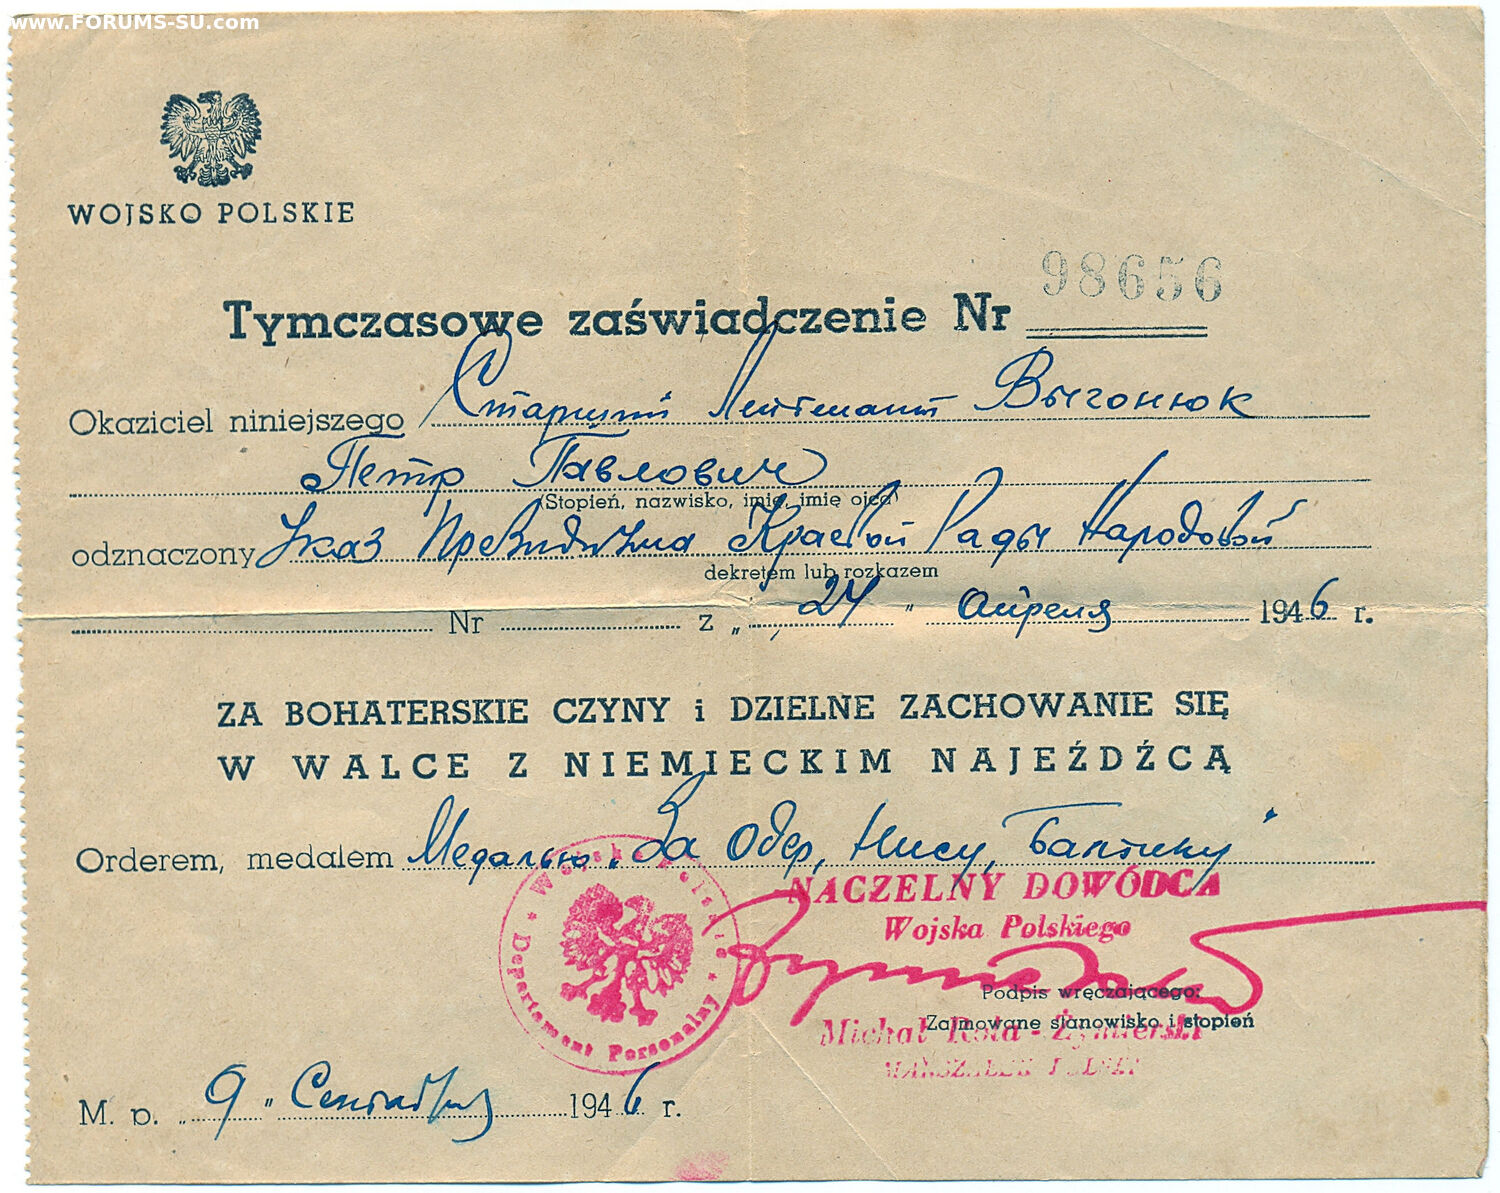 www.FORUMS-SU.com
WOJSKO POLSKIE
98656
Tymczasowe zaświadczenie Nr
Okaziciel niniejszego Старший Лейтенант Выгонюк
Петр Павлович
(Stopień, nazwisko, imię, imię ojca)
odznaczony Указ Президиума Краевой Рады Народовой
dekretem lub rozkazem
Nr z „ 24 " апреля 1946 r.
ZA BOHATERSKIE CZYNY i DZIELNE ZACHOWANIE SIĘ
W WALCE Z NIEMIECKIM NAJEŹDŹCĄ
Orderem, medalem Медалью „За Одер, Нису, Балтику"
Wojsko Polskie
Departament Personalny
NACZELNY DOWÓDCA
Wojska Polskiego
Podpis wręczającego:
Zajmowane stanowisko i stopień
Michał Rola-Żymierski
MARSZAŁEK POLSKI
M. p. „ 9 " Сентября 1946 r.